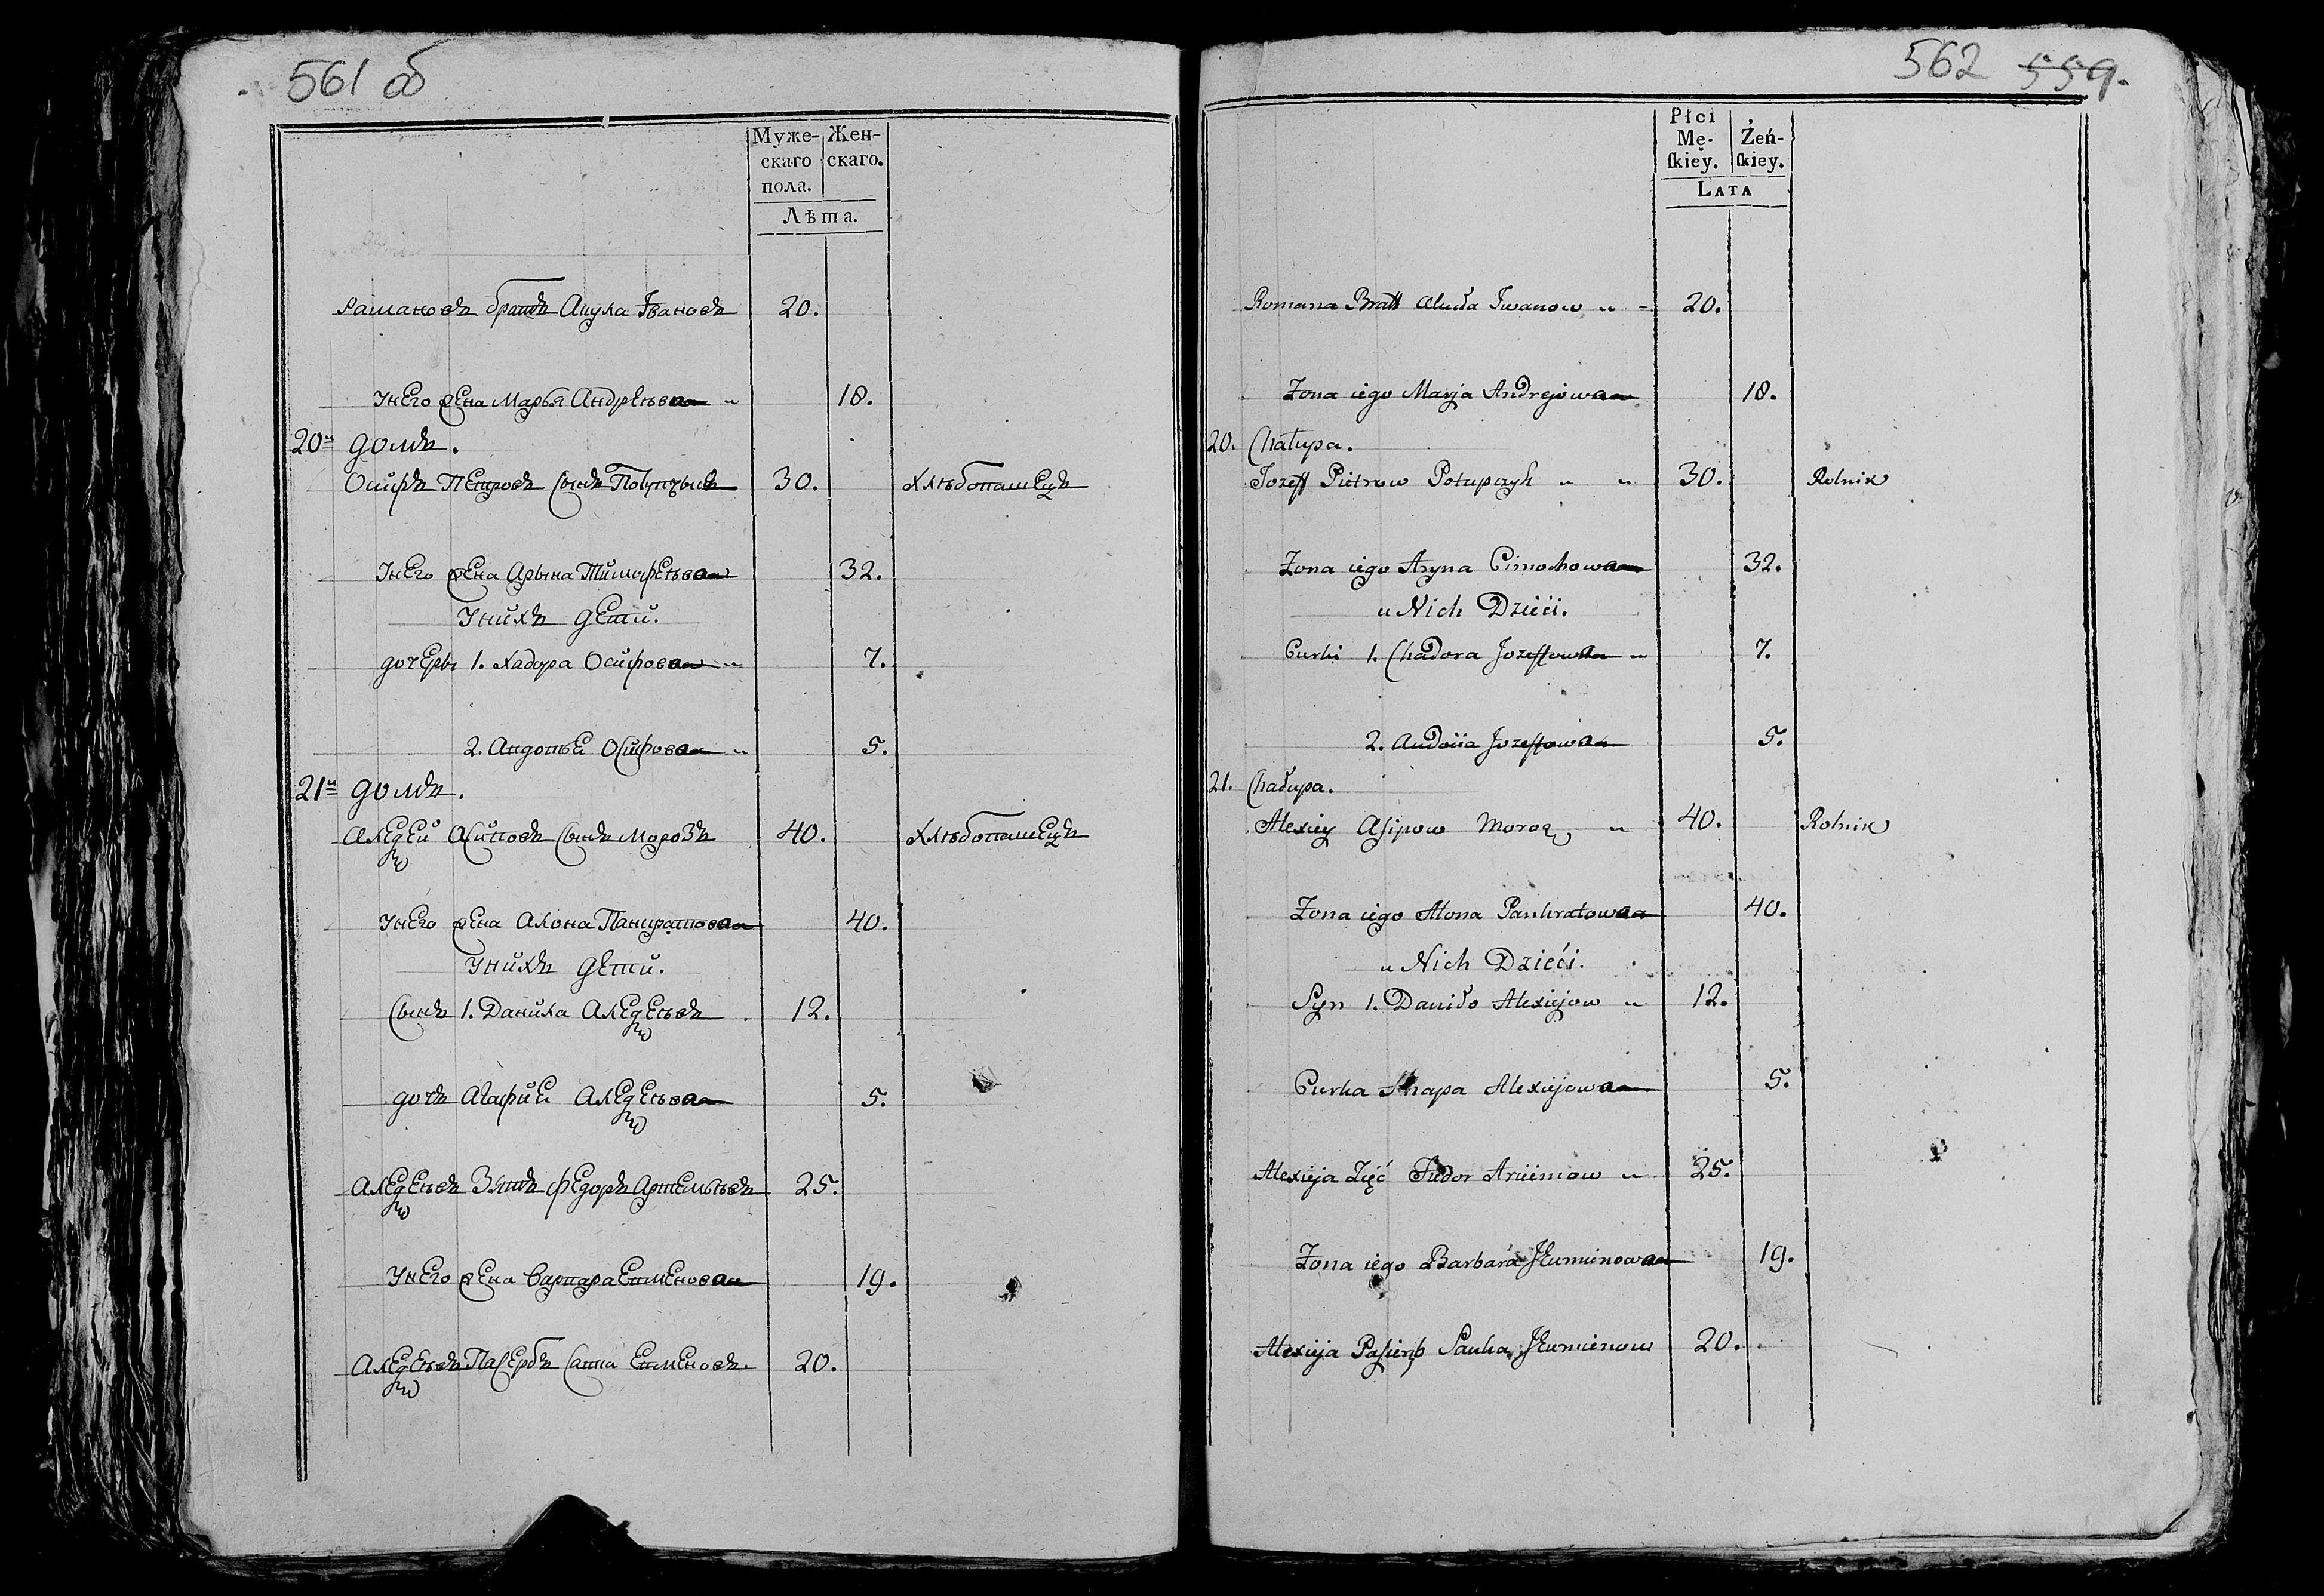 561 об
Муже- Жен-
скаго скаго.
пола.
Лѣта.
Рамановъ братъ Акула Івановъ 20.
Унего жена Марья Андрѣева 18.
20й домъ.
Осипъ Петровъ сынъ 30. Хлѣбопашецъ
Унего жена Арына Тимофѣева 32.
Унихъ дети.
дочеры 1. Хадора Осифова 7.
2. Авдотьи Осифова 5.
21й домъ.
Алеѯей Асиповъ сынъ Морозъ 40. Хлѣбопашецъ
Унего жена Алона Панкратова 40.
Унихъ дети.
сынъ 1. Данила Алеѯеѣвъ 12.
дочъ Агафии Алеѯеѣва 5.
Алеѯеѣвъ Зять Федоръ Артемьѣвъ 25.
Унего жена Варвара 19.
Алеѯеѣвъ Пасербъ Савка 20.
562 559.
Płci
Mę- Żeń-
ſkiey. ſkiey.
LATA
Romana Bratt Akuła Iwanow 20.
Żona iego Marja Andrejowa 18.
20. Chałupa.
Jozeff Piotrow Połupczyk 30. Rolnik
Żona iego Aryna Cimochowa 32.
u Nich Dzieci.
Curki 1. Chadora Jozeffowa 7.
2. Audocia Jozeffowa 5.
21. Chałupa.
Alexiey Aſipow Moroz 40. Rolnik
Żona iego Alona Pankratowa 40.
u Nich Dzieći.
Syn 1. Daniło Alexiejow 12.
Curka Ahapa Alexiejowa 5.
Alexieja Zięć Fiedor Arciemow 25.
Żona iego Barbara 19.
Alexieja Paſierb Sauka 20.